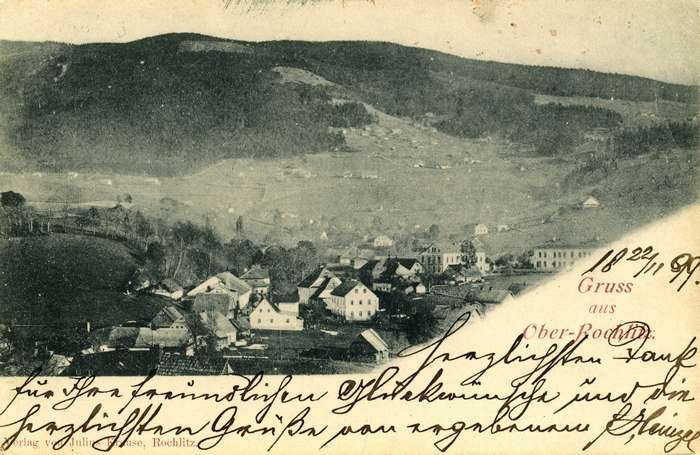 18 22/11 99.
Gruss
aus
Ober-Rochlitz.
Herzlichsten Dank
für Ihre freundlichen Glückwünsche und die
herzlichsten Grüße von ergebenem
Verlag von Julius Krause, Rochlitz